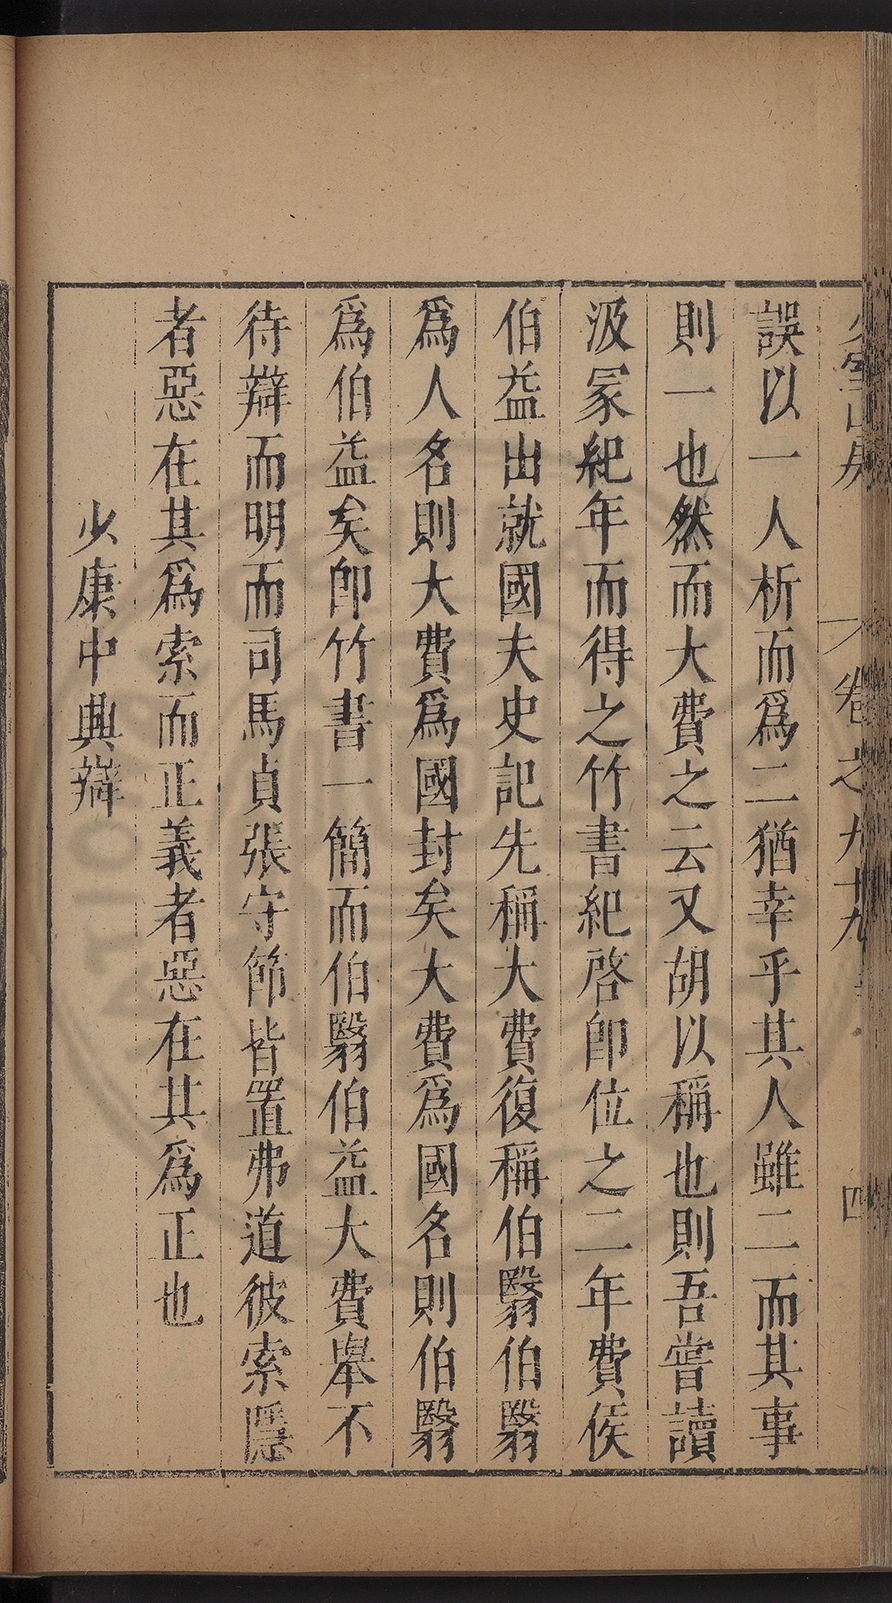 少室山房
卷之九十九
四
誤以一人析而爲二猶幸乎其人雖二而其事
則一也然而大費之云又胡以稱也則吾嘗讀
汲冢紀年而得之竹書紀啓卽位之二年費侯
伯益出就國夫史記先稱大費復稱伯翳伯翳
爲人名則大費爲國封矣大費爲國名則伯翳
爲伯益矣卽竹書一簡而伯翳伯益大費舉不
待辯而明而司馬貞張守節皆置弗道彼索隱
者惡在其爲索而正義者惡在其爲正也
少康中興辯